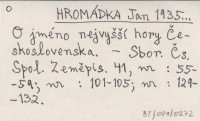 HROMÁDKA Jan 1935...
O jméno nejvyšší hory Če-
skoslovenska. - Sbor. Čs.
Spol. Zeměpis. 41, nr : 55-
-59; nr : 101-105; nr : 129-
-132.
BT/079/0272